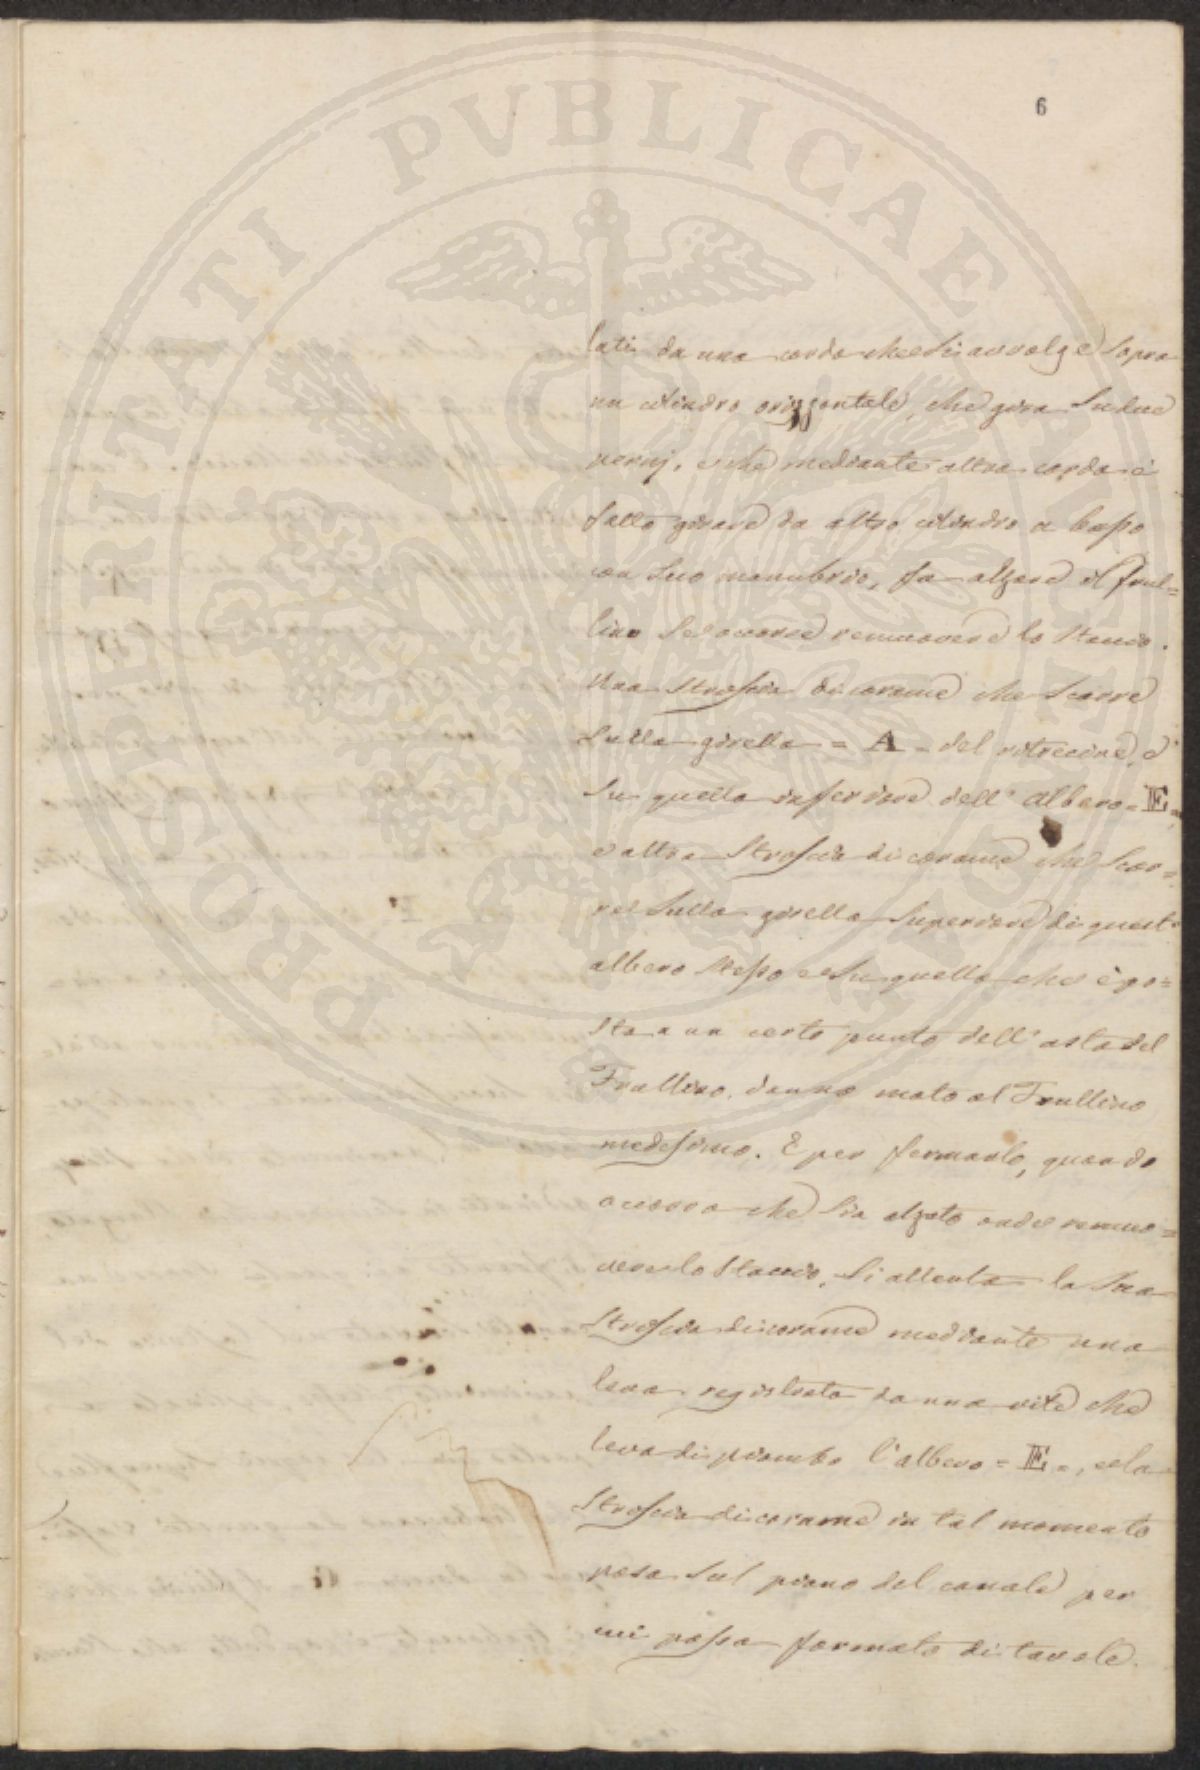 6
lati da una corda che si avvolge sopra
un cilindro orizzontale, che gira su due
pernj, e che mediante altra corda è
fatto girare da altro cilindro a basso
con suo manubrio, fa alzare il frul=
lino se occorre remuovere lo staccio.
Una stroscia di corame che scorre
sulla girella = A = del ritrecine, e
su quella inferiore dell' albero = E =,
e altra stroscia di corame che scor=
re sulla girella superiore di questo
albero stesso e su quella che è po=
sta a un certo punto dell' asta del
Frullino, danno moto al Frullino
medesimo. E per fermarlo, quando
occorra che sia alzato onde remuo=
vere lo staccio, si allenta la sua
stroscia di corame mediante una
leva registrata da una vite che
leva di piombo l' albero = E =, e la
stroscia di corame in tal momento
posa sul piano del canale per
cui passa formato di tavole.
PROSPERITATI PVBLICAE